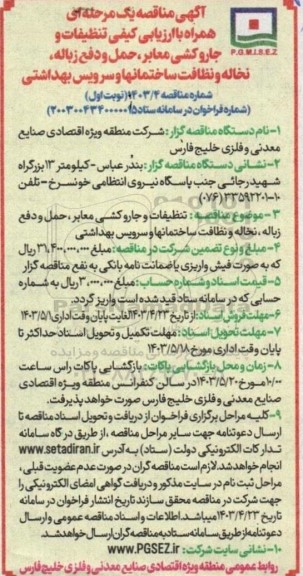 P.G.M.I.S.E.Z
آگهی مناقصه یک مرحله ای
همراه با ارزیابی کیفی تنظیفات و
جاروکشی معابر، حمل و دفع زباله،
نخاله و نظافت ساختمانها و سرویس بهداشتی
شماره مناقصه ۱۴۰۳/۴ (نوبت اول)
(شماره فراخوان در سامانه ستاد ۲۰۰۳۰۰۴۳۴۰۰۰۰۰۱۵)
۱-نام دستگاه مناقصه گزار: شرکت منطقه ویژه اقتصادی صنایع
معدنی و فلزی خلیج فارس
۲- نشانی دستگاه مناقصه گزار: بندر عباس- کیلومتر ۱۳ بزرگراه
شهید رجائی جنب پاسگاه نیروی انتظامی خونسرخ - تلفن
۱۰-۳۳۵۹۲۲۰۱ (۰۷۶)
۳- موضوع مناقصه: تنظیفات و جاروکشی معابر، حمل و دفع
زباله، نخاله و نظافت ساختمانها و سرویس بهداشتی
۴- مبلغ و نوع تضمین شرکت در مناقصه: مبلغ ۳۱،۴۰۰،۰۰۰،۰۰۰ ریال
که به صورت فیش واریزی یا ضمانت نامه بانکی به نفع مناقصه گزار
۵- قیمت اسناد و شماره حساب: مبلغ ۳،۰۰۰،۰۰۰ ریال به شماره
حسابی که در سامانه ستاد قید شده است واریز گردد.
۶- مهلت فروش اسناد: از تاریخ ۱۴۰۳/۴/۲۳ لغایت پایان وقت اداری ۱۴۰۳/۵/۱
۷- مهلت تحویل اسناد: مهلت تکمیل و تحویل اسناد حداکثر تا
پایان وقت اداری مورخ ۱۴۰۳/۵/۱۸
۸- زمان و محل بازگشایی پاکات: بازگشایی پاکات راس ساعت
۱۰/۰۰ مورخ ۱۴۰۳/۵/۲۰ در سالن کنفرانس منطقه ویژه اقتصادی
صنایع معدنی و فلزی خلیج فارس صورت خواهد پذیرفت.
۹- کلیه مراحل برگزاری فراخوان از دریافت و تحویل اسناد مناقصه تا
ارسال دعوتنامه جهت سایر مراحل مناقصه، از طریق درگاه سامانه
تدارکات الکترونیکی دولت (ستاد) به آدرس www.setadiran.ir
انجام خواهد شد. لازم است مناقصه گران در صورت عدم عضویت قبلی،
مراحل ثبت نام در سایت مذکور و دریافت گواهی امضای الکترونیکی را
جهت شرکت در مناقصه محقق سازند تاریخ انتشار فراخوان در سامانه
مورخ ۱۴۰۳/۴/۲۳ میباشد. اطلاعات و اسناد مناقصه عمومی و ارسال
دعوتنامه از طریق سامانه ستاد به مناقصه گران ارسال خواهد شد.
۱۰- نشانی سایت شرکت: www.PGSEZ.ir
روابط عمومی منطقه ویژه اقتصادی صنایع معدنی و فلزی خلیج فارس